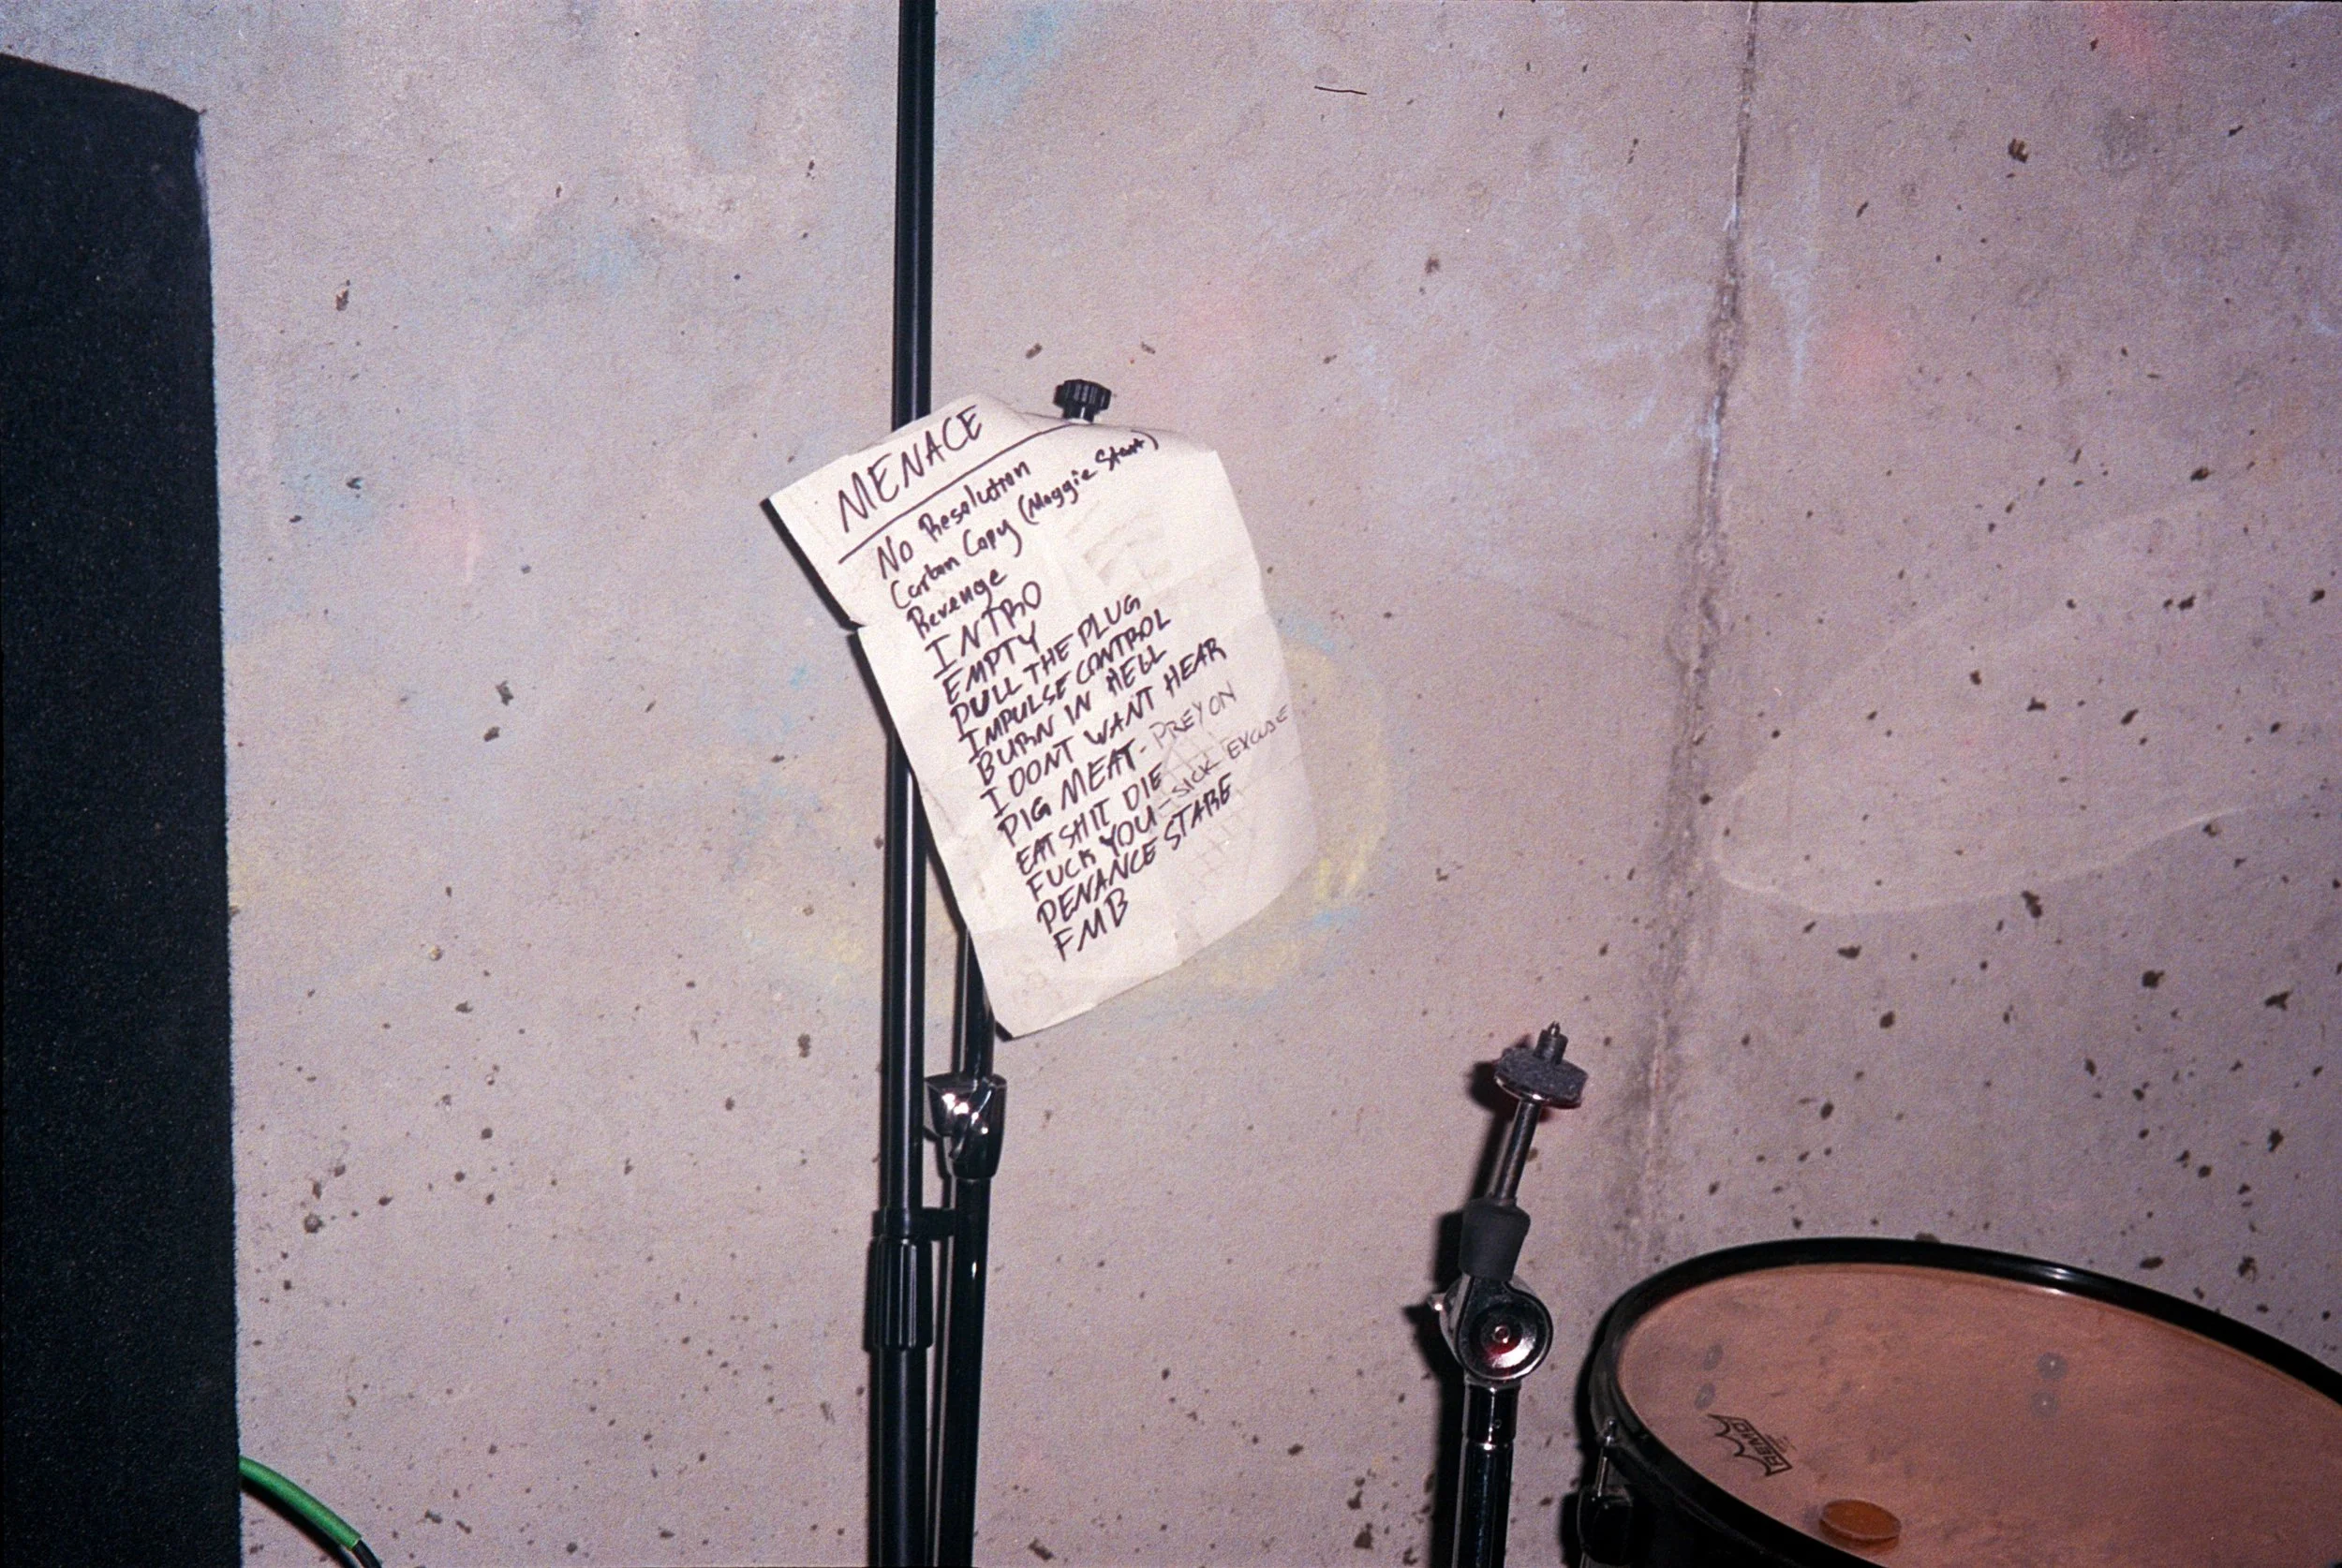 MENACE
No Resolution
Carbon Copy (Maggie Start)
Revenge
INTRO
EMPTY
PULL THE PLUG
IMPULSE CONTROL
BURN IN HELL
I DONT WANT HEAR
PIG MEAT - PREY ON
EAT SHIT DIE
FUCK YOU - SICK EXCUSE
PENANCE STARE
FMB
REMO